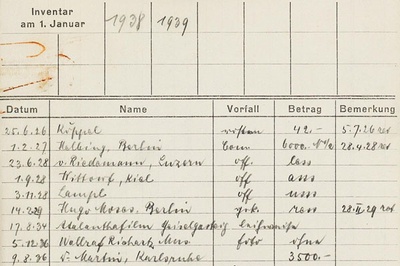 Inventar
am 1. Januar 1938 1939
Datum Name Vorfall Betrag Bemerkung
25.6.26 Küppel 42.- 5.7.26
1.2.27 Helbing, Berlin 6000. 28.4.28
23.6.28 v. Riedemann, Luzern off.
1.9.28 Wittdorf, Kiel off.
3.11.28 Lampl off.
14.2.29 Hugo Moses, Berlin 28.II.29
17.8.34 Atalantafilm Geiselgasteig leihweise
5.12.36 Wallraf Richartz Mus. Foto ohne
9.8.36 v. Martin, Karlsruhe 3500.-